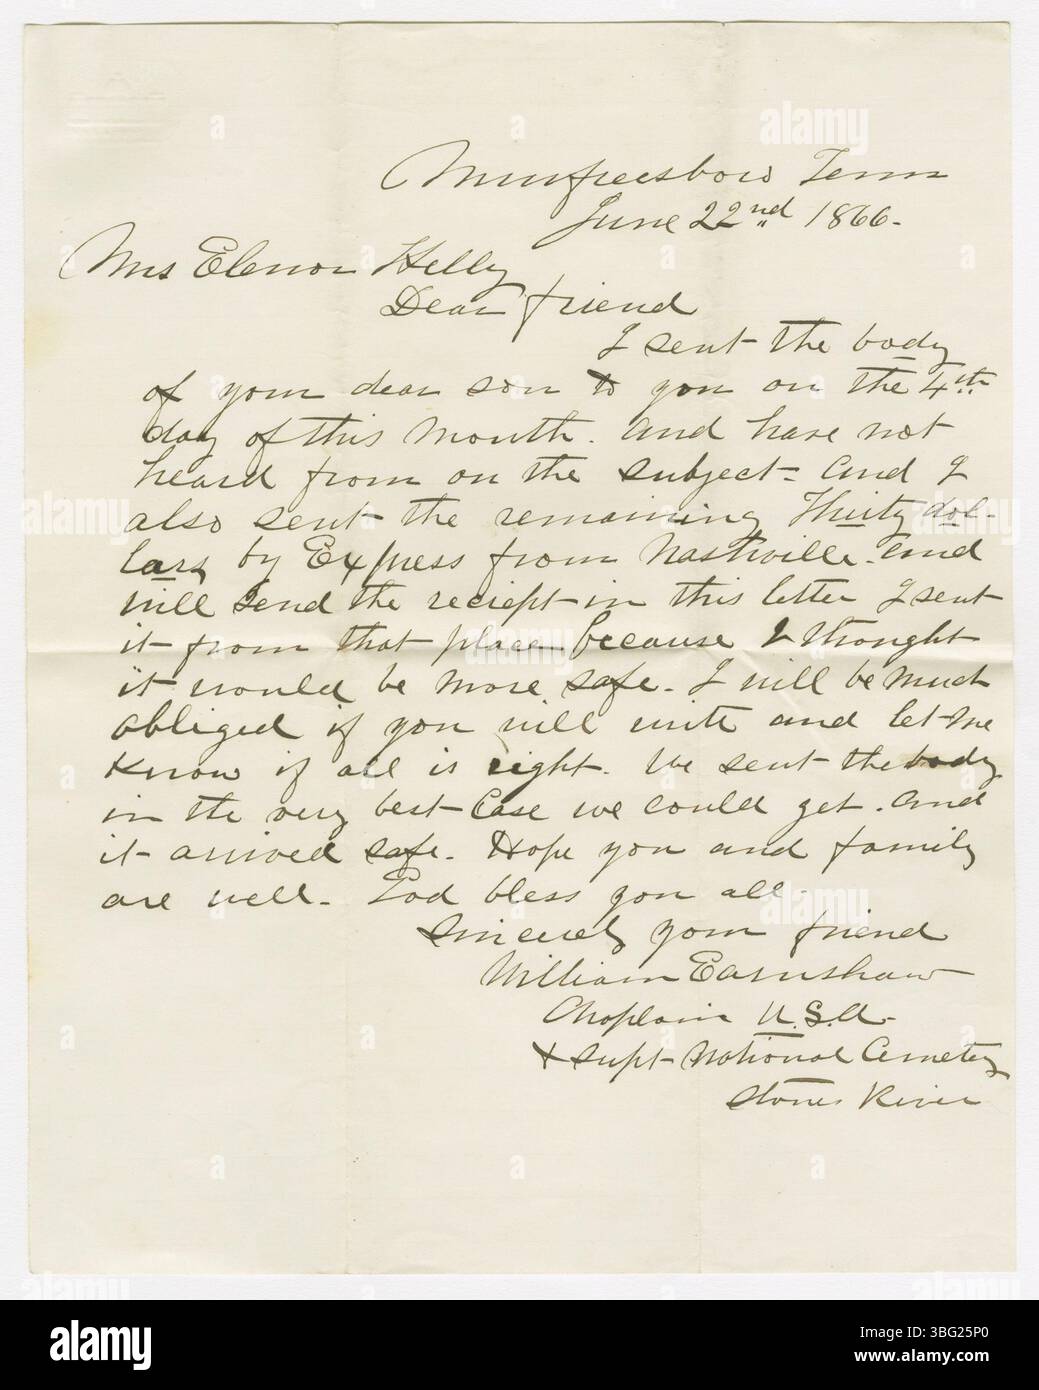 Murfreesboro Tenn
June 22nd 1866.
Mrs Elenor Kelly
Dear friend
I sent the body
of your dear son to you on the 4th
day of this month. and have not
heard from on the subject - and I
also sent the remaining Thirty dol-
lars by Express from Nashville. and
will send the reciept in this letter I sent
it from that place because I thought
it would be more safe. I will be much
obliged if you will write and let me
know if all is right. We sent the body
in the very best case we could get. and
it arrived safe. Hope you and family
are well. God bless you all.
Sincerely your friend
William Earnshaw
Chaplain U.S.A.
& supt National Cemetery
Stones River
alamy
Image ID: 3BG25P0
www.alamy.com